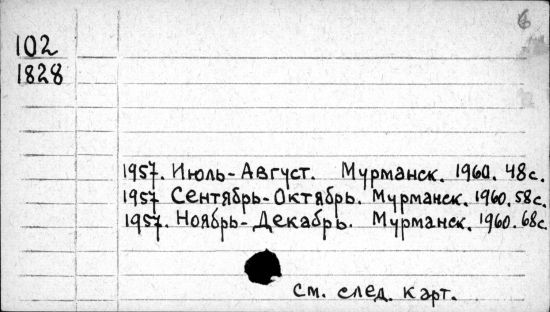 6
102
1828
1957. Июль-Август. Мурманск. 1960. 48с.
1957 Сентябрь-Октябрь. Мурманск. 1960. 58с.
1957. Ноябрь-Декабрь. Мурманск. 1960. 68с.
см. след. карт.